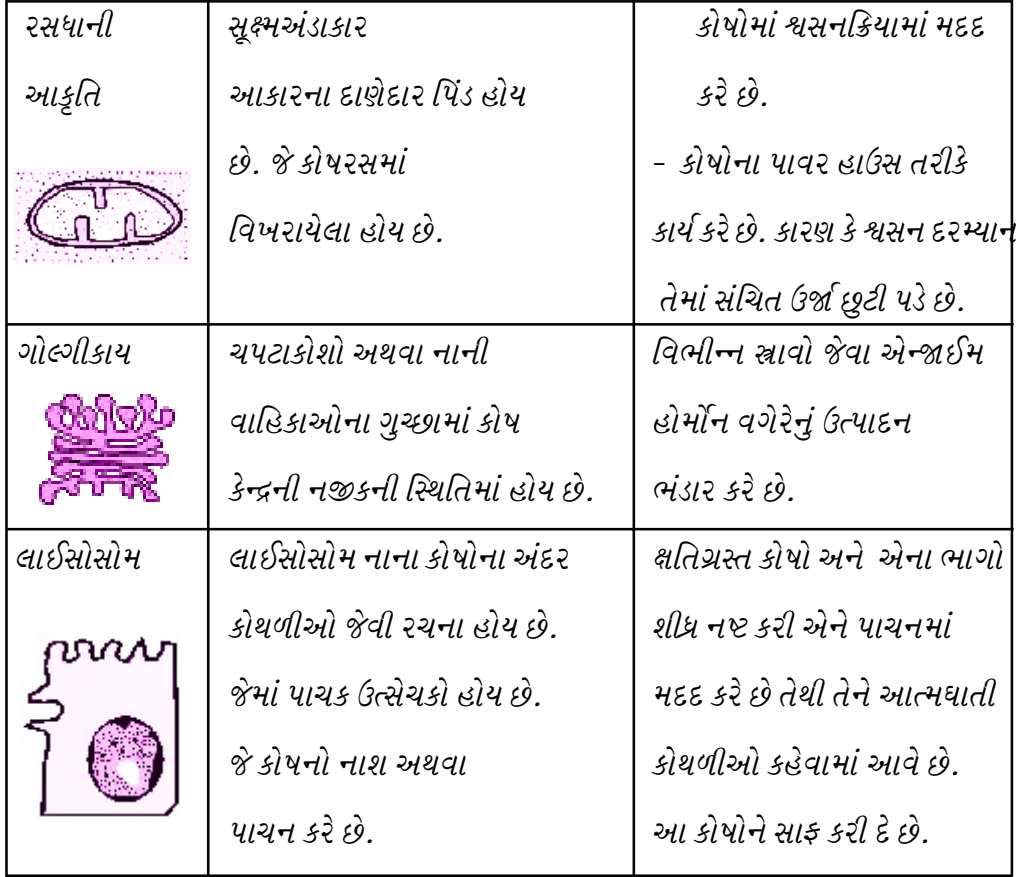 રસધાની
આકૃતિ
સૂક્ષ્મઅંડાકાર
આકારના દાણેદાર પિંડ હોય
છે. જે કોષરસમાં
વિખરાયેલા હોય છે.
કોષોમાં શ્વસનક્રિયામાં મદદ
કરે છે.
- કોષોના પાવર હાઉસ તરીકે
કાર્ય કરે છે. કારણ કે શ્વસન દરમ્યાન
તેમાં સંચિત ઉર્જા છુટી પડે છે.
ગોલ્ગીકાય
ચપટાકોશો અથવા નાની
વાહિકાઓના ગુચ્છામાં કોષ
કેન્દ્રની નજીકની સ્થિતિમાં હોય છે.
વિભીન્ન સ્ત્રાવો જેવા એન્જાઈમ
હોર્મોન વગેરેનું ઉત્પાદન
ભંડાર કરે છે.
લાઈસોસોમ
લાઈસોસોમ નાના કોષોના અંદર
કોથળીઓ જેવી રચના હોય છે.
જેમાં પાચક ઉત્સેચકો હોય છે.
જે કોષનો નાશ અથવા
પાચન કરે છે.
ક્ષતિગ્રસ્ત કોષો અને એના ભાગો
શીધ્ર નષ્ટ કરી એને પાચનમાં
મદદ કરે છે તેથી તેને આત્મઘાતી
કોથળીઓ કહેવામાં આવે છે.
આ કોષોને સાફ કરી દે છે.